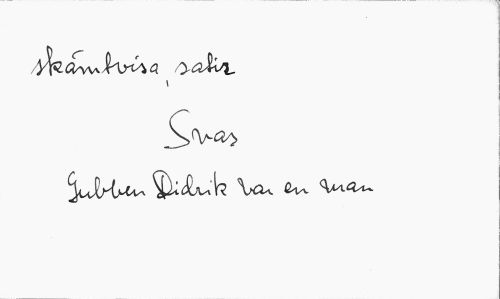 skämtvisa, satir
Svar
Gubben Didrik var en man